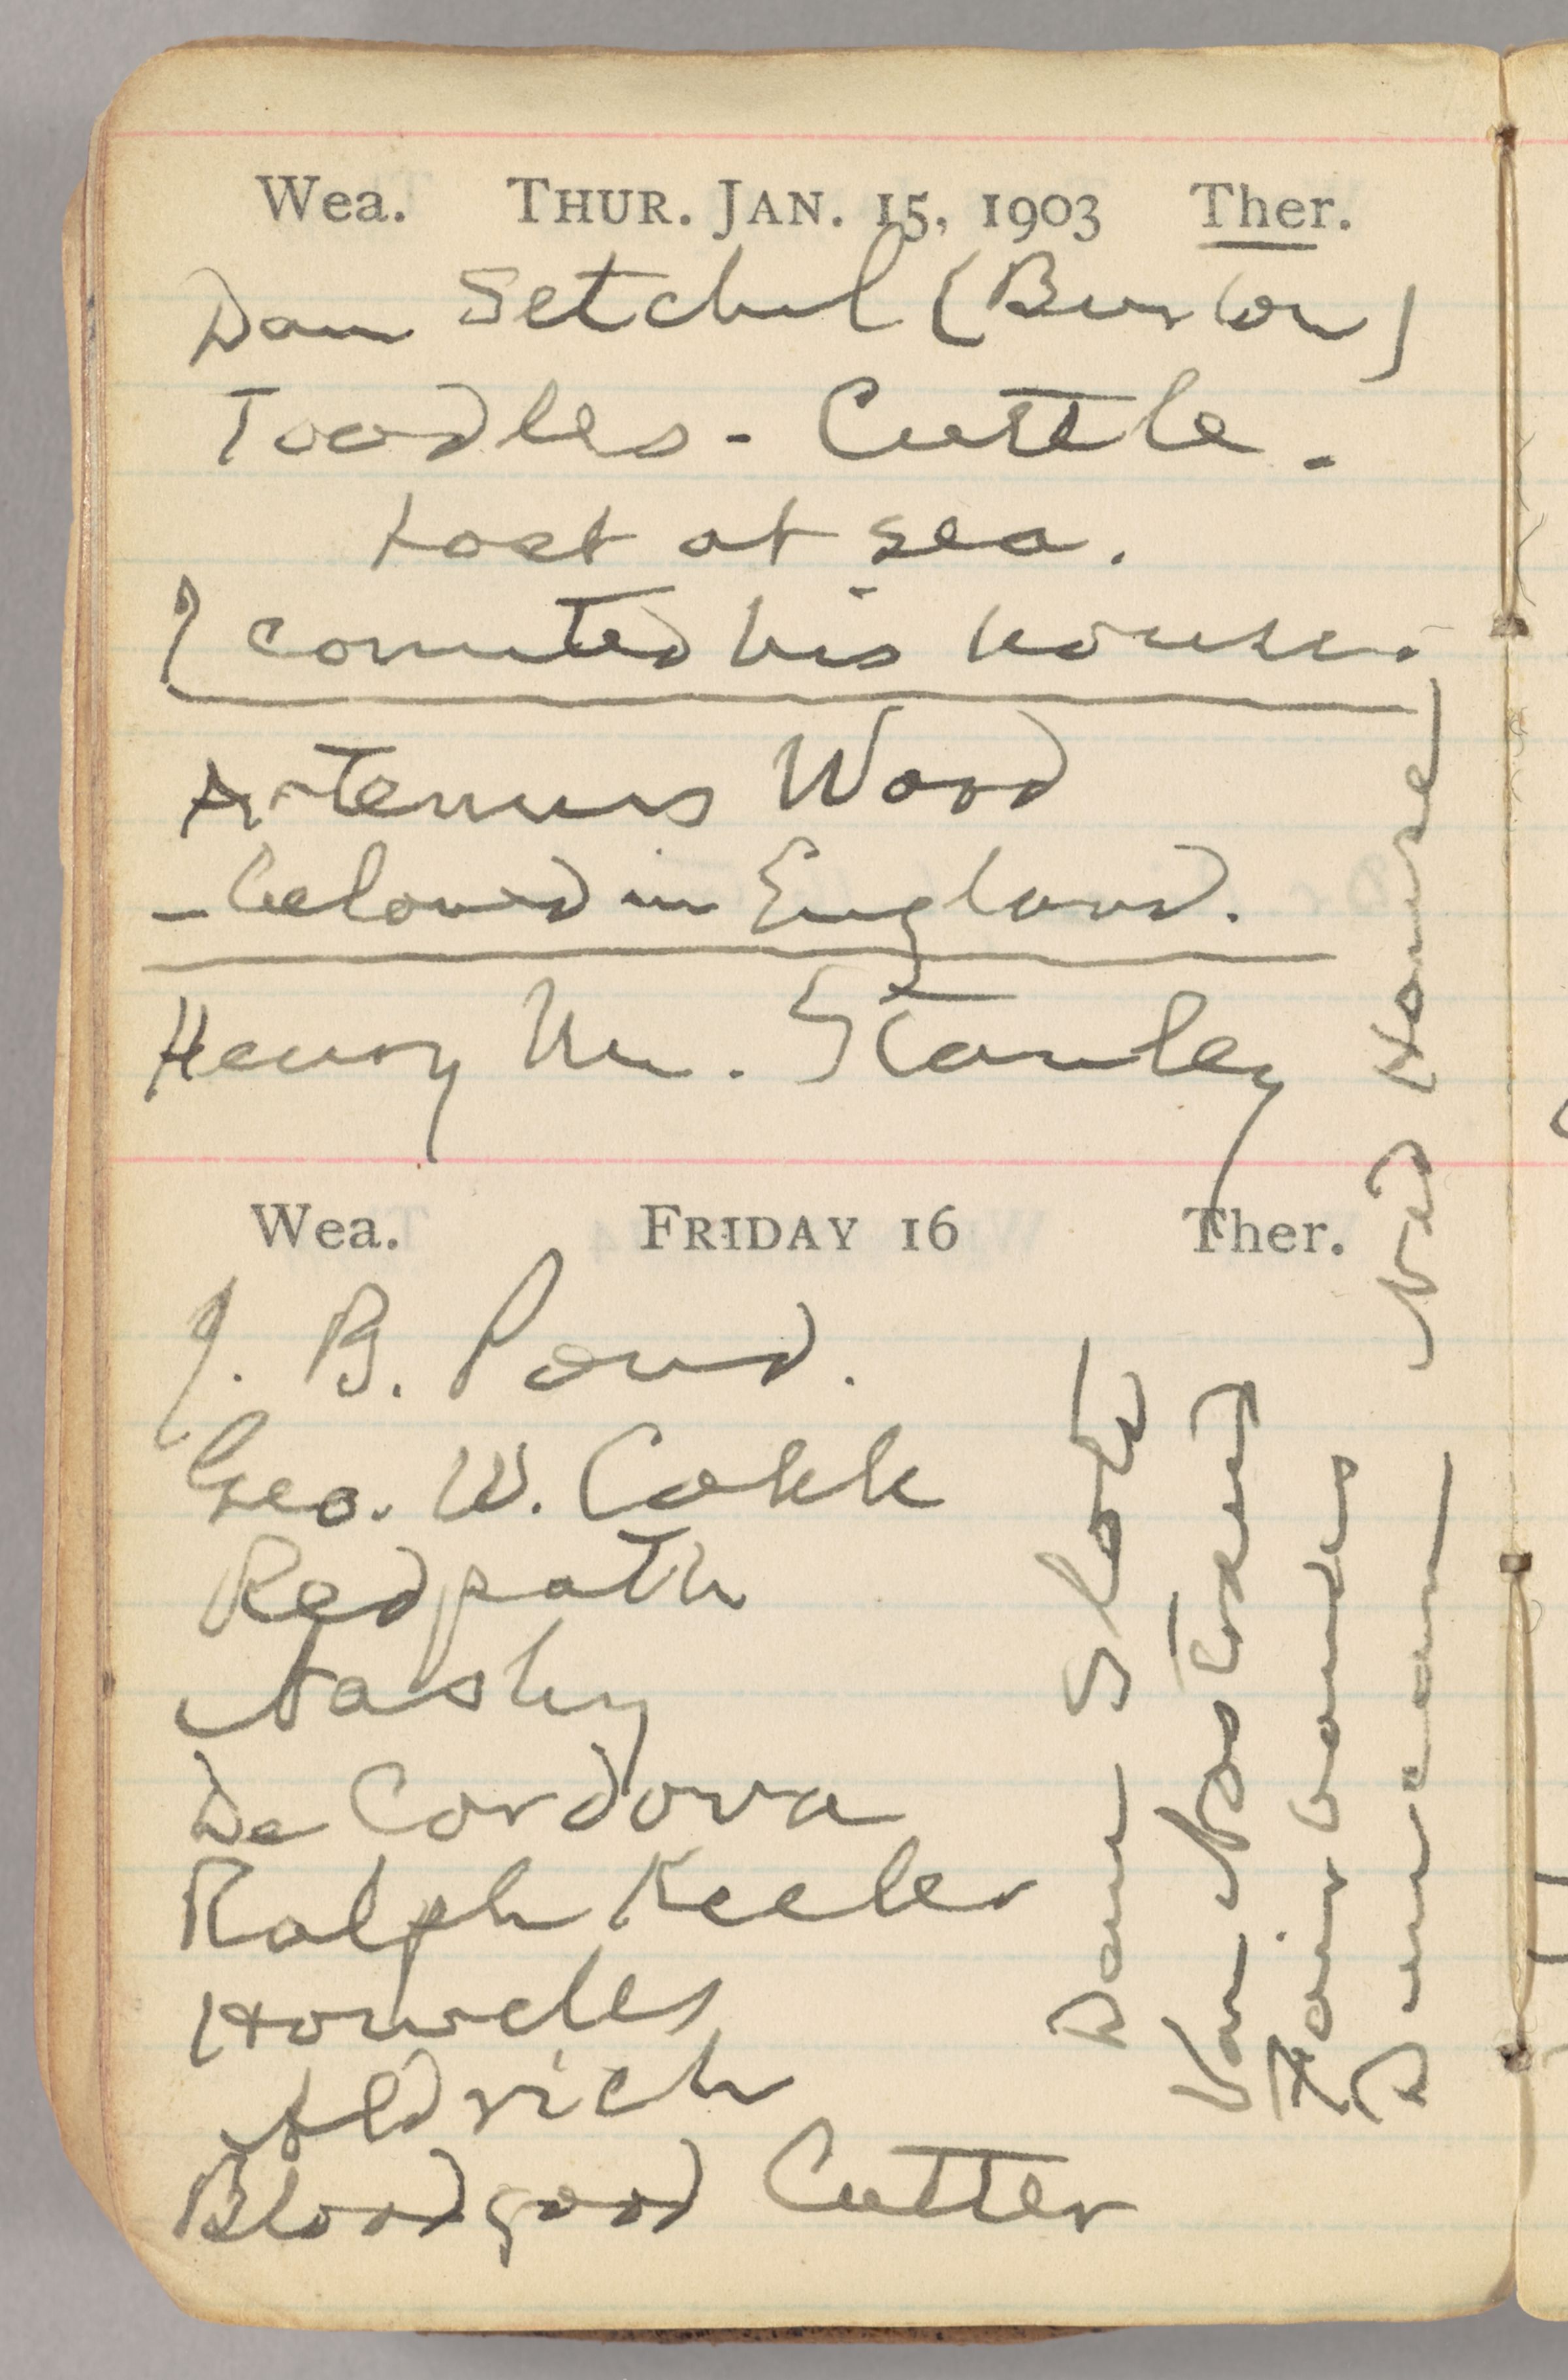 Wea. THUR. JAN. 15, 1903 Ther.
Dan Setchel (Burton)
Toodles - Cuttle.
Lost at sea.
I counted his house.
Artemus Ward
- beloved in England.
Henry M. Stanley
Wea. FRIDAY 16 Ther.
J. B. Pond.
Geo. W. Cable
Redpath
Nasby
De Cordova
Ralph Keeler
Howells
Aldrich
Bloodgood Cutter
Dan Slote
Van Nostrand
Fairbanks
Duncan
Ned House